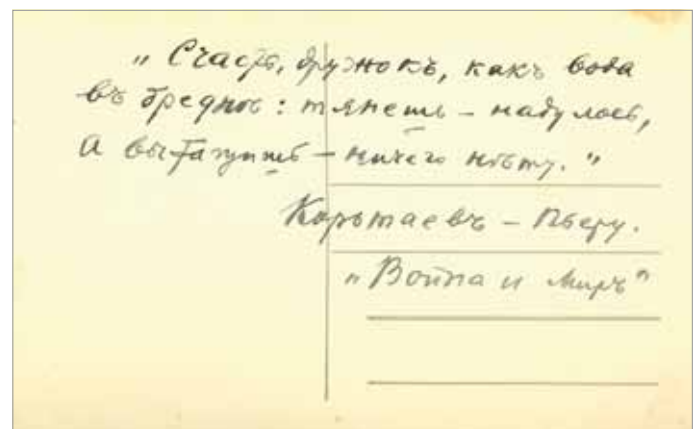 „ Счастье, дружокъ, какъ вода
въ бредне: тянешь – надулось,
а вытащишь – ничего нѣту."
Каратаевъ – Пьеру.
„Война и Миръ"